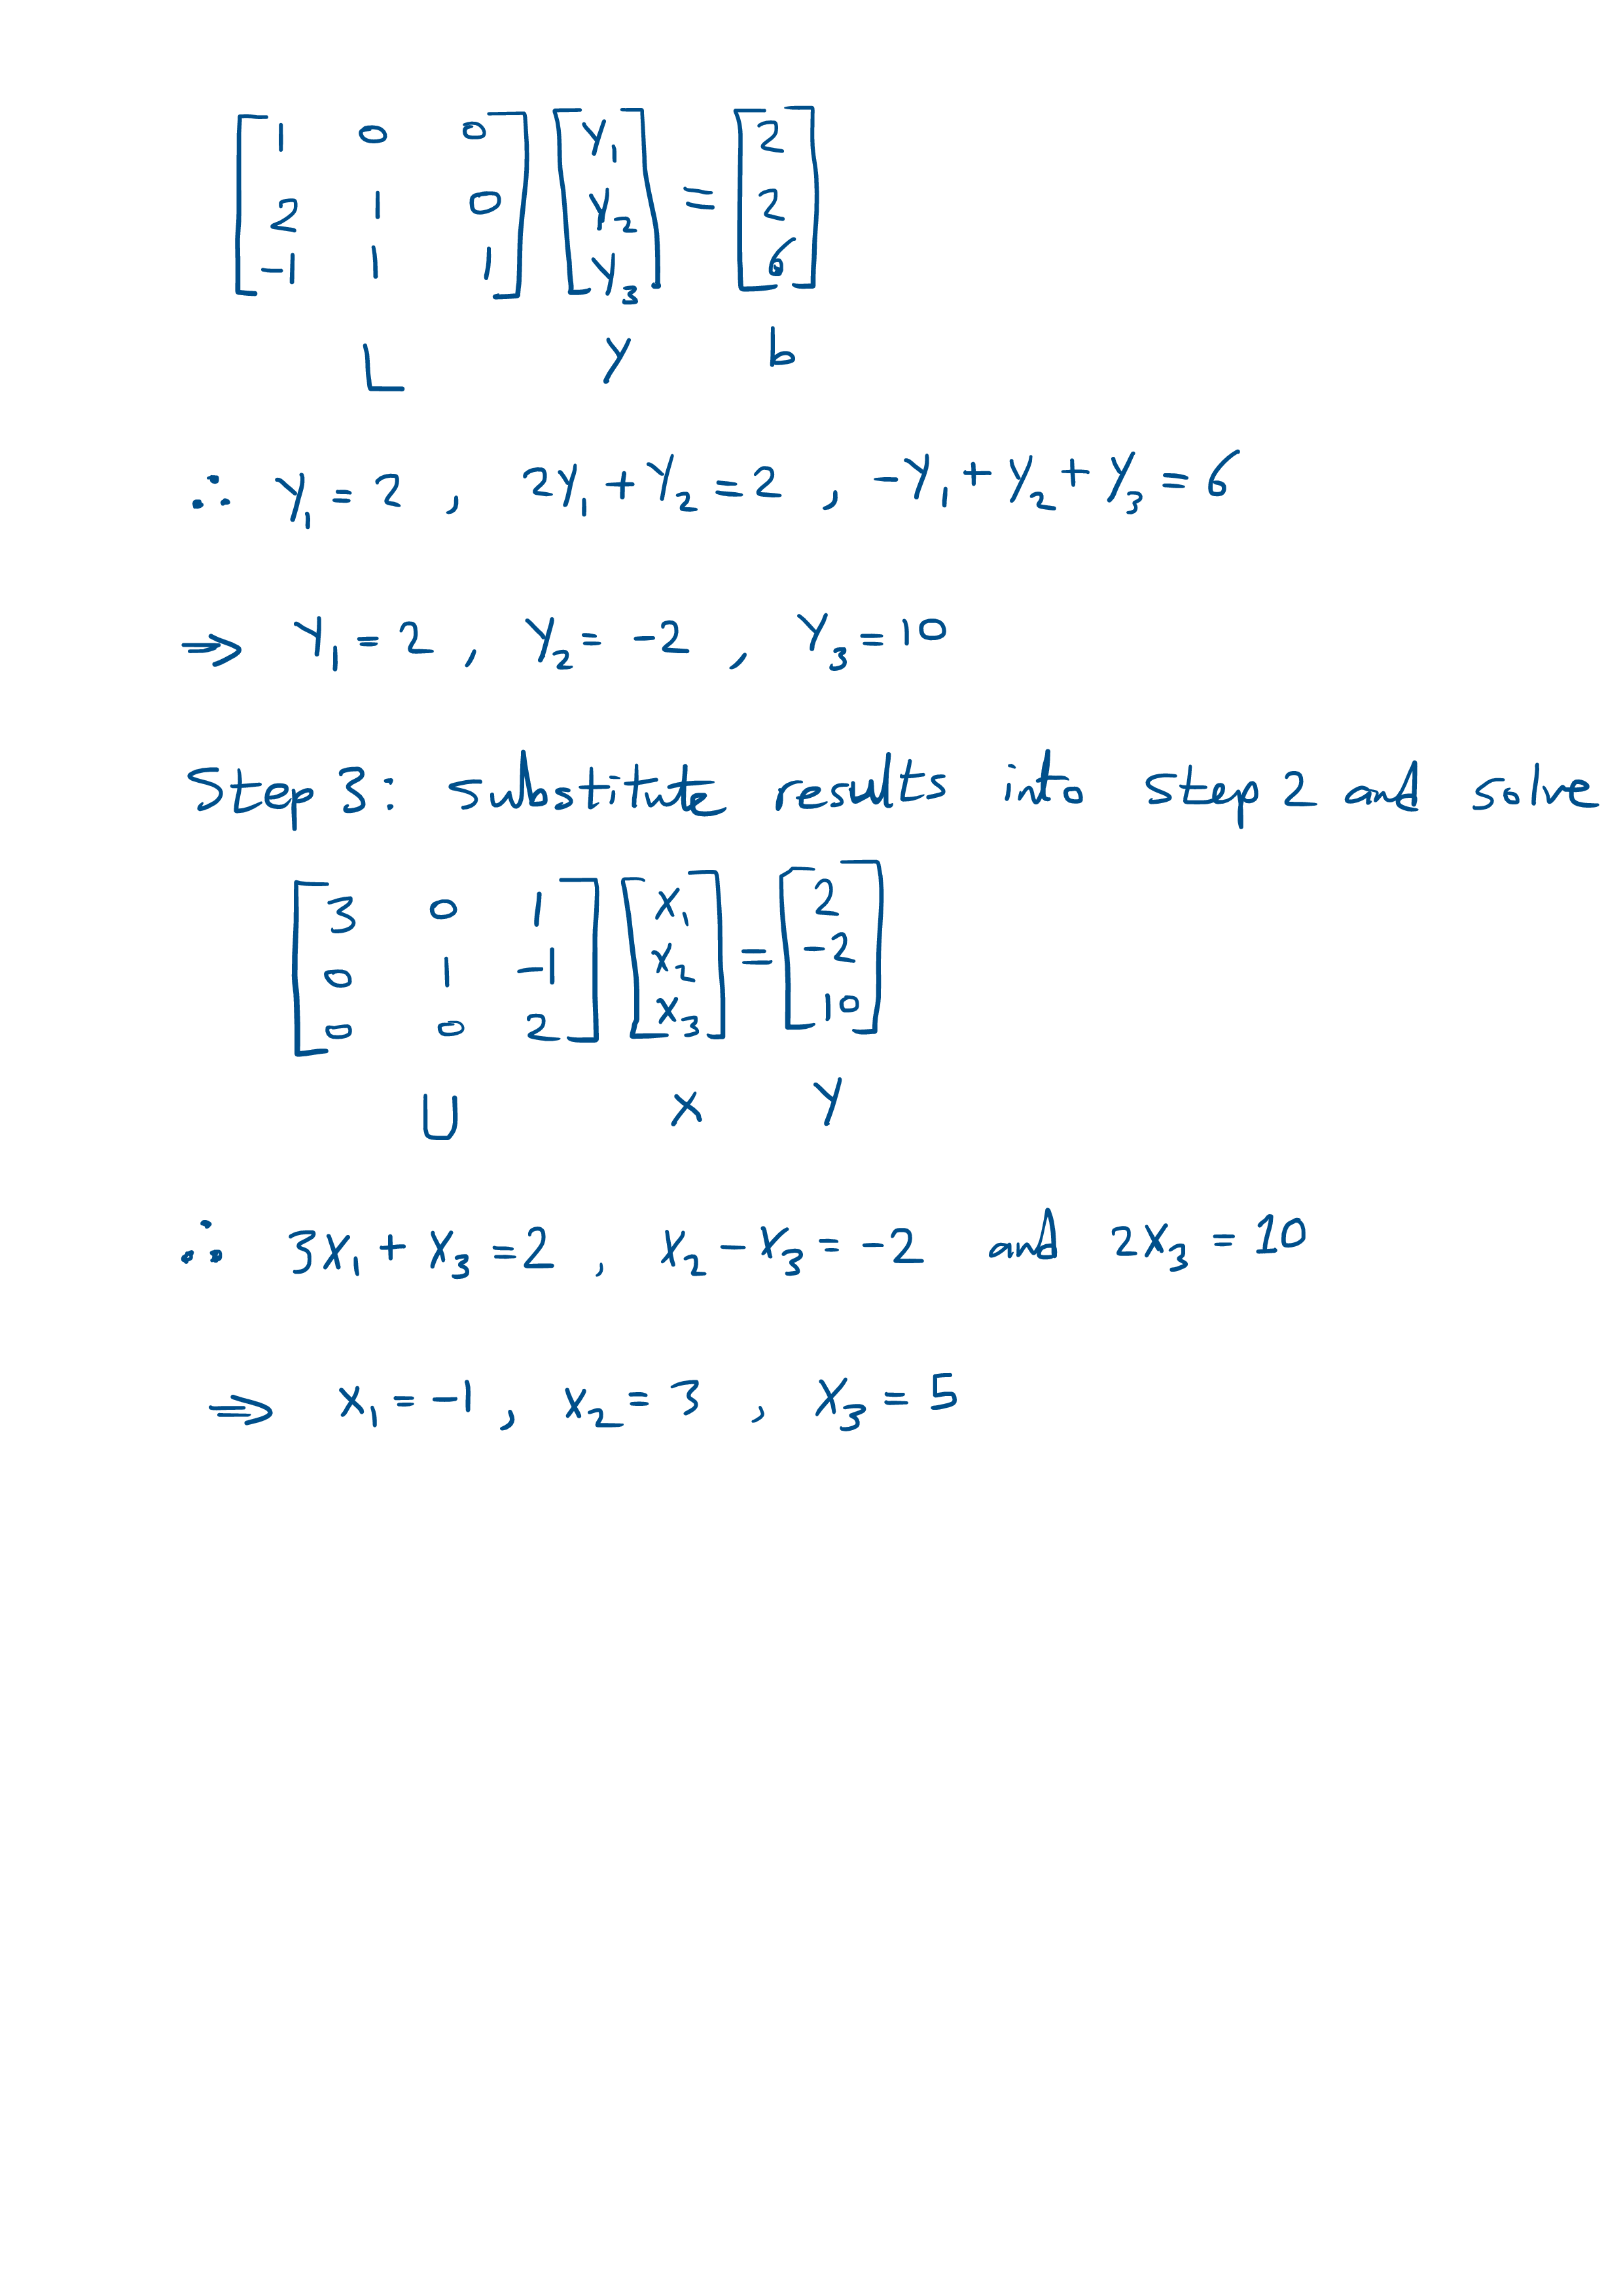 [1 0 0] [y₁] = [2]
[2 1 0] [y₂] [2]
[-1 1 1] [y₃] [6]
L y b
∴ y₁ = 2 , 2y₁ + y₂ = 2 , -y₁ + y₂ + y₃ = 6
⇒ y₁ = 2 , y₂ = -2 , y₃ = 10
Step 3: substitute results into step 2 and solve
[3 0 1] [x₁] = [2]
[0 1 -1] [x₂] [-2]
[0 0 2] [x₃] [10]
U x y
∴ 3x₁ + x₃ = 2 , x₂ - x₃ = -2 and 2x₃ = 10
⇒ x₁ = -1 , x₂ = 3 , x₃ = 5